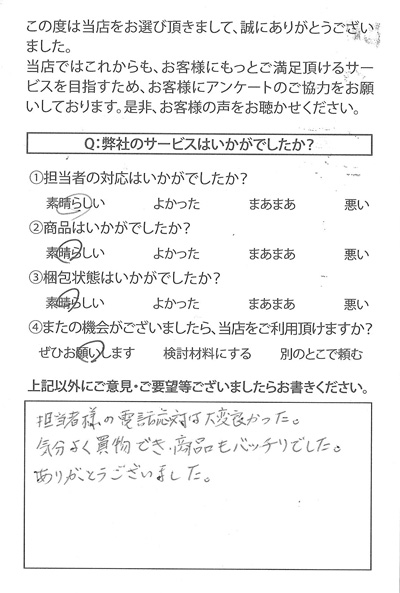 この度は当店をお選び頂きまして、誠にありがとうござい
ました。
当店ではこれからも、お客様にもっとご満足頂けるサー
ビスを目指すため、お客様にアンケートのご協力をお願
いしております。是非、お客様の声をお聴かせください。
Q:弊社のサービスはいかがでしたか?
①担当者の対応はいかがでしたか?
素晴らしい よかった まあまあ 悪い
②商品はいかがでしたか?
素晴らしい よかった まあまあ 悪い
③梱包状態はいかがでしたか?
素晴らしい よかった まあまあ 悪い
④またの機会がございましたら、当店をご利用頂けますか?
ぜひお願いします 検討材料にする 別のとこで頼む
上記以外にご意見・ご要望等ございましたらお書きください。
担当者様の電話応対は大変良かった。
気分よく買物でき、商品もバッチリでした。
ありがとうございました。